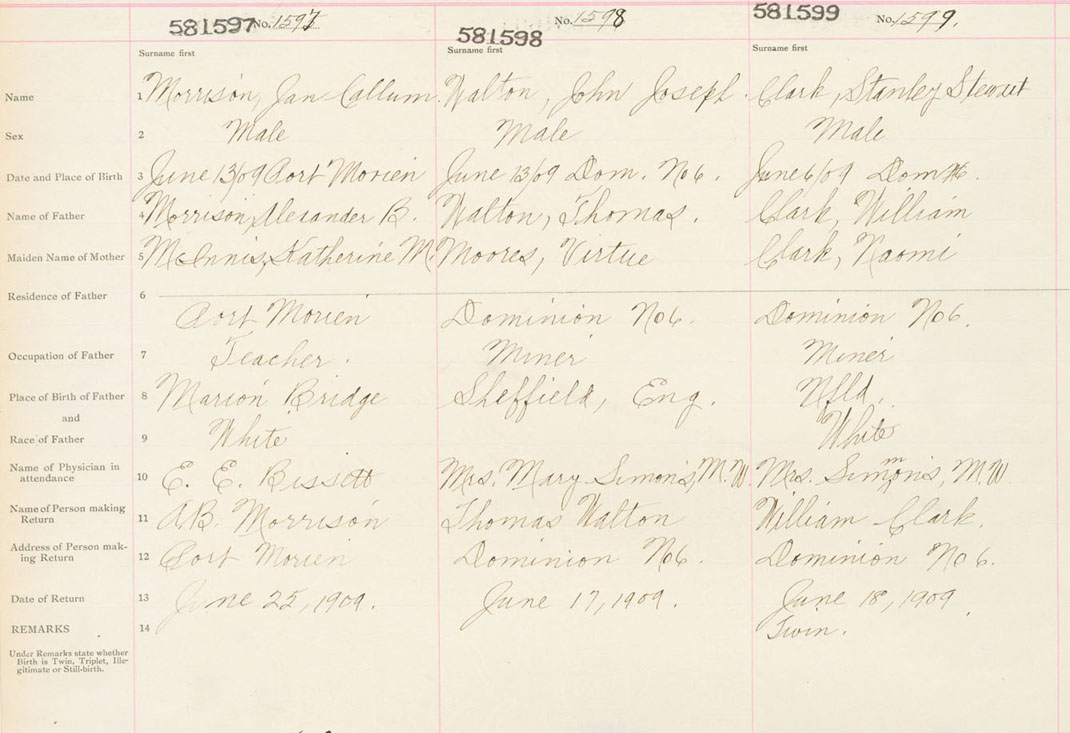 581597 No. 1597 581598 No. 1598 581599 No. 1599.
Surname first Surname first Surname first
Name 1 Morrison, Ian Callum. Walton, John Joseph. Clark, Stanley Stewart
Sex 2 Male Male Male
Date and Place of Birth 3 June 13/09 Port Morien June 13/09 Dom. No 6. June 6/09 Dom #6.
Name of Father 4 Morrison, Alexander B. Walton, Thomas. Clark, William
Maiden Name of Mother 5 McInnis, Katherine M. Moores, Virtue Clark, Naomi
Residence of Father 6
Port Morien Dominion No 6. Dominion No 6.
Occupation of Father 7 Teacher. Miner Miner
Place of Birth of Father 8 Marion Bridge Sheffield, Eng. Nfld.
and
Race of Father 9 White White
Name of Physician in attendance 10 E. E. Bissett Mrs. Mary Simonis, M.W. Mrs. Simmonis, M.W.
Name of Person making Return 11 A.B. Morrison Thomas Walton William Clark.
Address of Person mak-
ing Return 12 Port Morien Dominion No 6. Dominion No 6.
Date of Return 13 June 25, 1909. June 17, 1909. June 18, 1909.
REMARKS 14 Twin.
Under Remarks state whether
Birth is Twin, Triplet, Ille-
gitimate or Still-birth.